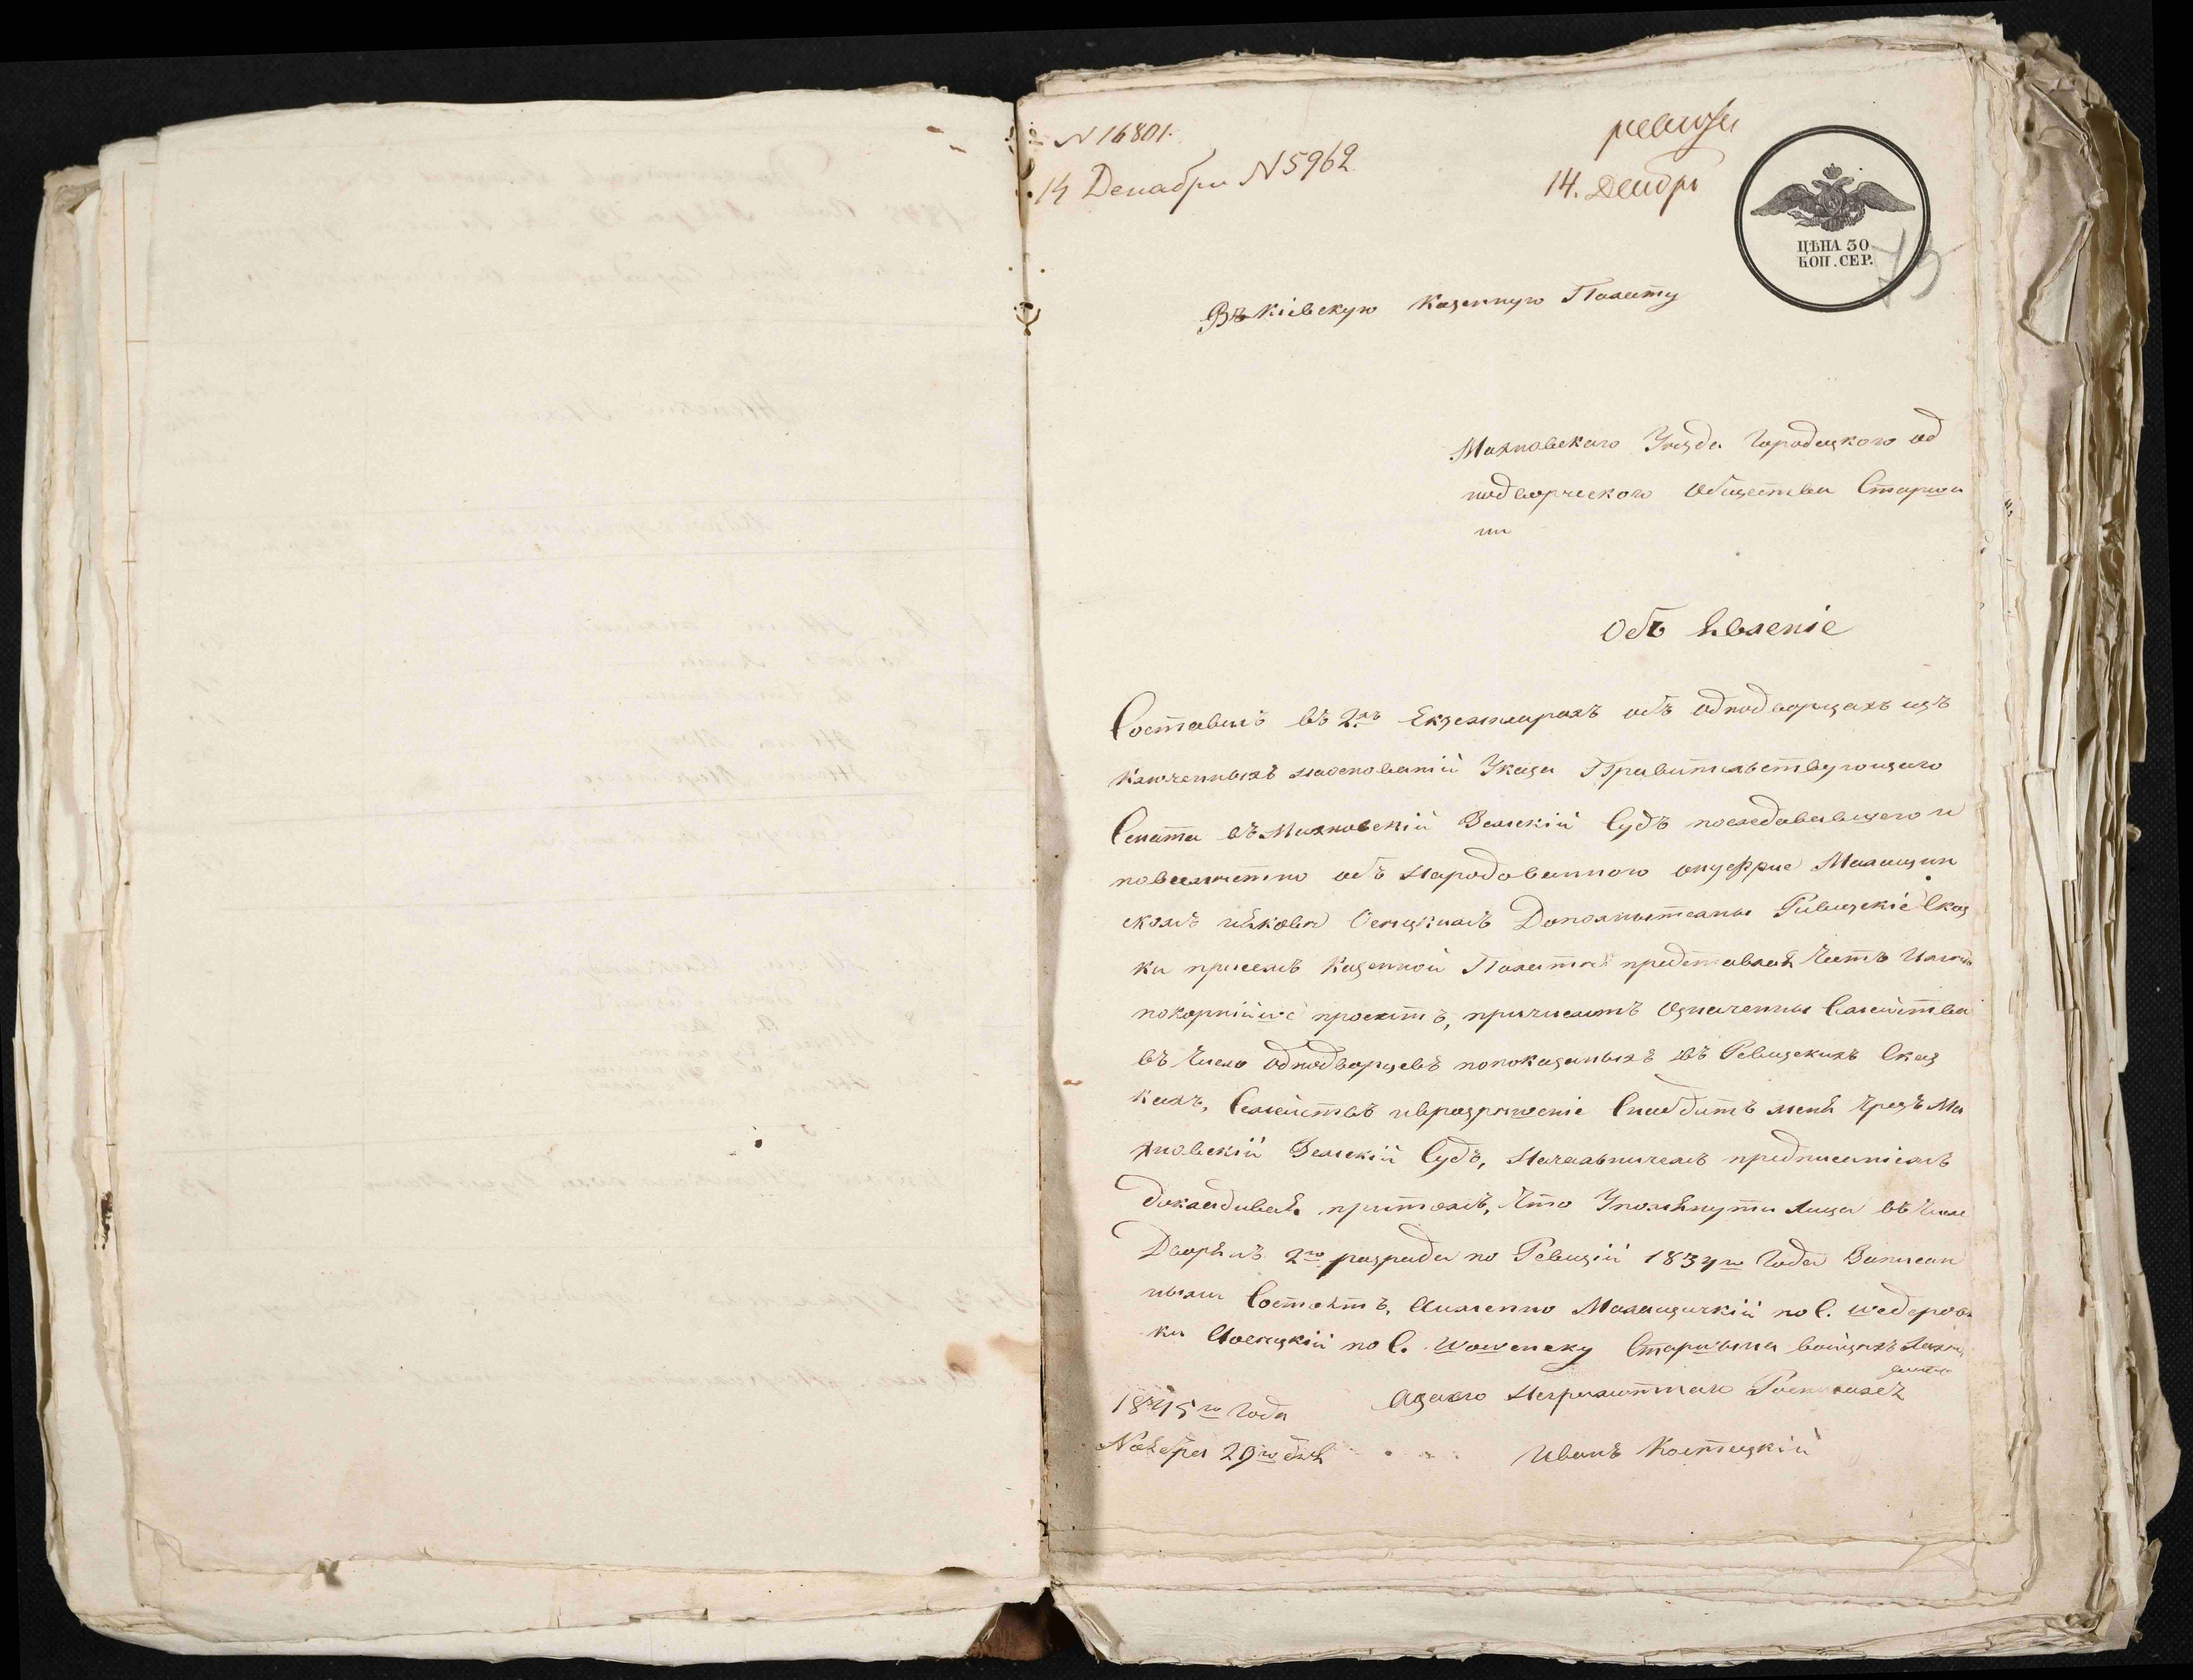 N 16801.
14 Декабря N 5962
ревизск
14. Декабр
ЦѢНА 30
КОП. СЕР.
73
Въ Кіевскую Казенную Палату
Махновскаго Уѣзда Городецкого од
нодворческого Общества Старши
ни
Объ явленіе
Составивъ въ 2хъ Екземплярахъ объ однодворцахъ изъ
ключенныхъ наоснованій Указа Правительствующаго
Сената въ Махновскій Земскій Судъ последовавшего и
повсеместно объ народованного Малищин
скомъ Дополнытелны Ривизскіе Сказ
ки присемъ Казенной Палатѣ представляя Честь Имею
покорнѣйше проситъ, причислитъ Означенны Семейства
въ Число Однодворцевъ попоказанымъ въ Ревизскихъ Сказ
кахъ, Семействъ иразрешеніе Снабдитъ меня Чрезъ Ма
хновскій Земскій Судъ, Началничемъ предписаніемъ
докладывая притомъ, Что Упомянути Лица въ Числе
Дворянъ 2го разряда по Ревизіи 1834го Года Записан
ными Состоятъ, Аименно Малищинскій по С. Шедеров
ки по С. Старшына
Неграмотнаго
1845го Года
Ноября 29го дня
Иванъ Костецкій